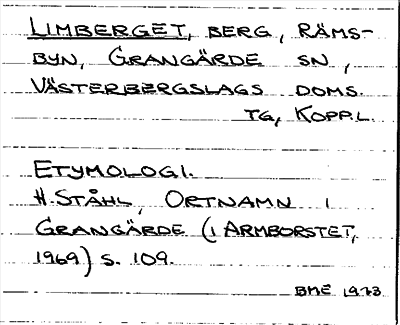 LIMBERGET, BERG, RÄMS-
BYN, GRANGÄRDE SN,
VÄSTERBERGSLAGS DOMS.
TG, KOPP.L.
ETYMOLOGI.
H. STÅHL, ORTNAMN I
GRANGÄRDE (I ARMBORSTET,
1969) S. 109.
BME 1973